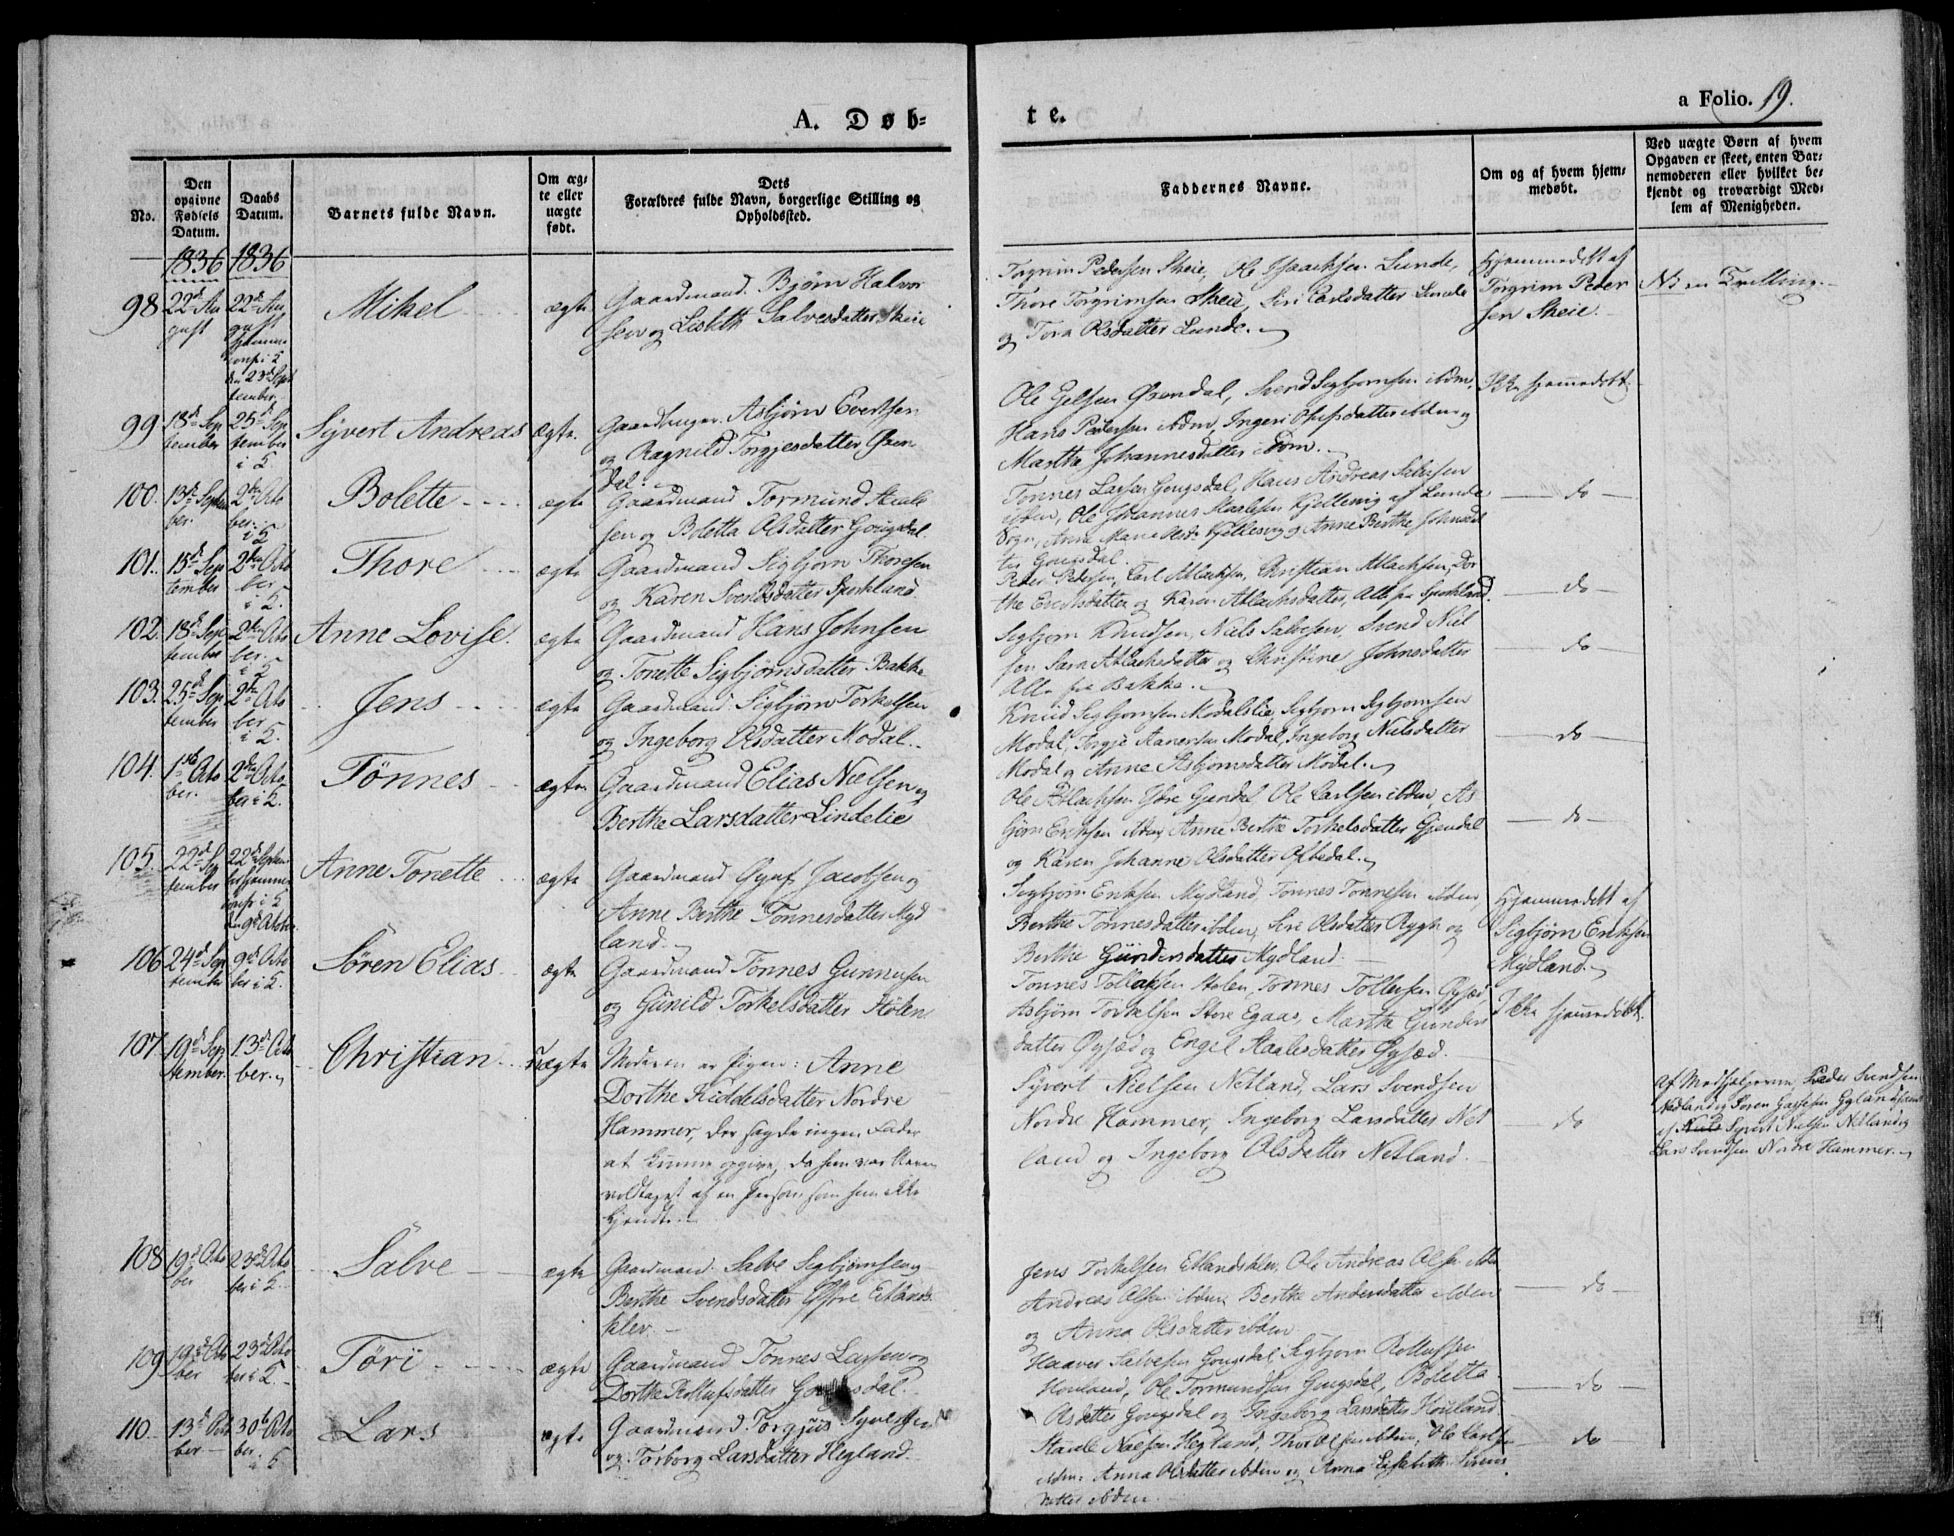 A. Døb=
te.
a Folio. 19.
No.
Den opgivne Fødsels Datum.
Daabs Datum.
Barnets fulde Navn.
Om æg= te eller uægte født.
Dets
Forældres fulde Navn, borgerlige Stilling og
Opholdssted.
Faddernes Navne.
Om og af hvem hjem= medøbt.
Ved uægte Børn af hvem
Opgaven er skeet, enten Bar=
nemoderen eller hvilket be=
kjendt og troværdigt Med=
lem af Menigheden.
1836 1836
98 22d Au gust
22d Au gust hjemme conf: i K den 23d Sept tember
Mikel
ægte
Gaardmand Bjørn Halvor
sen og Lisbeth Salvesdatter Skeie
Torgrim Pedersen Skeie, Ole Isaachsen Lunde,
Thore Torgrimsen Skeie, Siri Carlsdatter Lunde
og Tora Olsdatter Lunde.
Hjemmedøbt af
Torgrim Peder
sen Skeie.
NB en Tvilling.
99 18d Sep tember
25d Sep tember i K
Syvert Andreas
ægte.
Gaardbruger Asbjørn Evertsen
og Ragnild Torgjesdatter Øren
dal.
Ole Gelsen Ørendal, Svend Sigbjørnsen ibdm,
Hans Pedersen ibdm, Ingeri datter ibdm og
Martha Johannesdatter ibdm.
Ikke hjemmedøbt
100. 13de Septem ber.
2den Octo ber. i K
Bolette
ægte
Gaardmand Tormund Staale
sen og Boletta Olsdatter Gougsdal.
Tønnes Larsen Gougsdal, Hans Andreas Salvesen
ibden, Ole Johannes Staalesen Kjellevig af Lunde
Sogn, Anne Marie Kjellevig og Anne Berthe Johnsdat
ter Gougsdal.
do
101. 15d Sep tember
2den Octo ber i K.
Thore
ægte
Gaardmand Sigbjørn Thoresen
og Karen Svendsdatter Spirkland.
Peder Pedersen, Carl Atlachsen, Christian Atlachsen, Dor
the Erichsdatter og Karen Atlachsdatter, Alle fra Spirkland.
do
102. 18d Sep tember
2den Octo ber. i K
Anne Lovise
ægte
Gaardmand Hans Johnsen
og Tonette Sigbjørnsdatter Bakke
Sigbjørn Knudsen, Niels Salvesen, Svend Niel
sen Sara Atlachsdatter og Christine Johnsdatter
Alle fra Bakke.
do
103. 25d Sep tember
2den Octo ber i K.
Jens
ægte
Gaardmand Sigbjørn Torkelsen
og Ingeborg Olsdatter Modal.
Knud Sigbjørnsen Modalslie, Sigbjørn Sigbjørnsen
Modal, Torgje Aanensen Modal, Ingeborg Nielsdatter
Modal og Anne Asbjørnsdatter Modal.
do
104. 1ste Octo ber.
2den Octo ber i K.
Tønnes
ægte
Gaardmand Elias Nielsen og
Berthe Larsdatter Lindelie
Ole Atlachsen Øvre Gjendal, Ole Carlsen ibden, As
bjørn Erichsen ibden, Anne Berthe Torkelsdatter Gjendal
og Karen Johanne Olsdatter Oftedal.
do
105. 22d Sep tember
22d Septem ber hjemme conf: i K den 9d October
Anne Tonette
ægte
Gaardmand Jacobsen og
Anne Berthe Tønnesdatter Myd
land.
Sigbjørn Erichsen Mydland, Tønnes Tønnesen ibden,
Berthe Tønnesdatter ibden, Siri Olsdatter Rygh og
Berthe Gundersdatter Mydland.
Hjemmedøbt af
Sigbjørn Erichsen
Mydland.
106 24d Sep tember
9d Octo ber i K.
Søren Elias
ægte
Gaardmand Tønnes Gunnusen
og Gunild Torkelsdatter Stølen
Tønnes Tollaksen Stølen, Tønnes Tollefsen Øysæd
Asbjørn Torkelsen Store Egaas, Marthe Gunders
datter Øysæd og Engel Staalesdatter Øysæd.
Ikke hjemmedøbt.
107 19d Sep tember.
13d Octo ber.
Christian
uægte
Moderen er Pigen: Anne
Dorthe Kiddelsdatter Nordre
Hammer, der sagde ingen Fader
at kunne opgive, da hun var bleven
voldtaget af en Person som hun ikke
kjendte.
Syvert Nielsen Netland, Lars Svendsen
Nordre Hammer, Ingeborg Larsdatter Net
land og Ingeborg Olsdatter Netland.
do
Af Medhjelperne, Peder Svendsen
Netland og Søren Gyland samt
af Niels Syvert Nielsen Netland og
Lars Svendsen Nordre Hammer.
108 19d Octo ber
23d Octo ber i K.
Salve
ægte
Gaardmand Salve Sigbjørnsen og
Berthe Svendsdatter Øvre Eitlands
klev.
Jens Torkelsen Eitlandsklev, Ole Andreas Olsen ibden
Andreas Olsen ibden Berthe Andersdatter ibden
og Anna Olsdatter ibden
do
109 19d Octo ber
23d Octo ber i K.
Tøri
ægte
Gaardmand Tønnes Larsen og
Dorthe Rollufsdatter Gougsdal.
Haaver Salvesen Gougsdal, Sigbjørn Rollufsen
Houland, Ole Tormundsen Gougsdal, Boletta
Olsdatter Gougsdal og Ingeborg Larsdatter Houland
do
110. 13d Octo ber
30te Octo ber. i K
Lars
ægte
Gaardmand Torgjuis Syvertsen
og Torborg Larsdatter Hegland.
Staale Nielsen Hegland, Thor Olsen ibden, Ole Carlsen
ibden, Anna Olsdatter ibden og Anna Elisabeth
datter ibden.
do